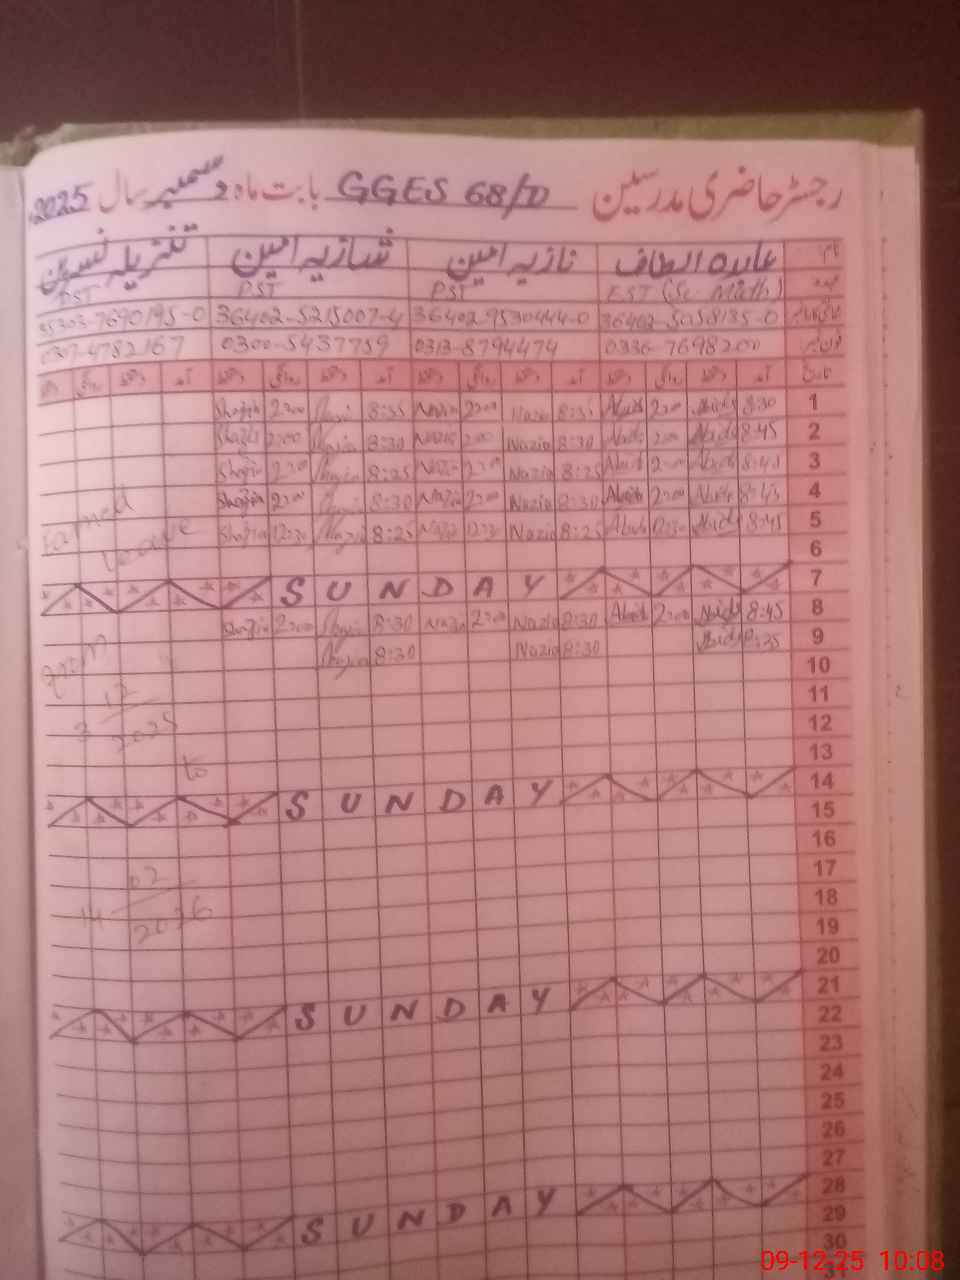 رجسٹر حاضری مدرسین GGES 68/D بابت ماہ دسمبر سال 2025
عابدہ الطاف نازیہ امین شازیہ امین تنزیلہ نسرین
EST (Sc. Math) PST PST PST
36402-5058135-0 36402-9530444-0 36402-5215007-4 35303-7690195-0
0336-7698200 0313-8794474 0300-5437759 0307-4782167
آمد دستخط روانگی دستخط آمد دستخط روانگی دستخط آمد دستخط روانگی دستخط آمد دستخط روانگی
1 8:30 Abida 2:00 Abida 8:35 Nazia 2:00 Nazia 8:35 2:00 Shazia
2 8:45 Abida 2:00 Abida 8:30 Nazia 2:00 Nazia 8:30 2:00 Shazia
3 8:45 Abida 2:00 Abida 8:25 Nazia 2:00 Nazia 8:25 2:00 Shazia
4 8:45 Abida 2:00 Abida 8:30 Nazia 2:00 Nazia 8:30 2:00 Shazia
5 8:45 Abida 12:30 Abida 8:25 Nazia 12:30 Nazia 8:25 12:30 Shazia
6
7 SUNDAY
8 8:45 Abida 2:00 Abida 8:30 Nazia 2:00 Nazia 8:30 2:00 Shazia
9 8:35 Abida 8:30 Nazia 8:30
10
11
12
13
14 SUNDAY
15
16
17
18
19
20
21 SUNDAY
22
23
24
25
26
27
28 SUNDAY
29
30
31
Earned
Leave
from
3 12 2025
to
14 02 2026
09-12-25 10:08